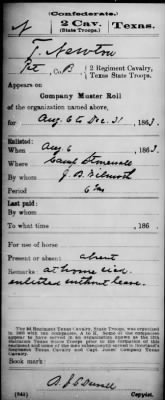 (Confederate.)
N 2 Cav. Texas.
(State Troops.)
T. Newton
Pvt, Co. B, 2 Regiment Cavalry,
Texas State Troops.
Appears on
Company Muster Roll
of the organization named above,
for Aug. 6 to Dec. 31, 1863.
Enlisted:
When Aug 6, 1863.
Where Camp Stonewall
By whom J. B. Wilmeth
Period 6 mos
Last paid:
By whom
To what time , 186 .
For use of horse
Present or absent absent
Remarks: at home sick.
enlisted without leave.
The 2d Regiment Texas Cavalry, State Troops, was organized
in 1863 with ten companies, A to K. Some of the companies
appear to have served in an organization known as the
Battalion Texas State Troops prior to the formation of this
regiment and some of the men subsequently served in
Regiment Texas Cavalry and Capt. Jones' Company Texas
Cavalry.
Book mark:
(642) Copyist.